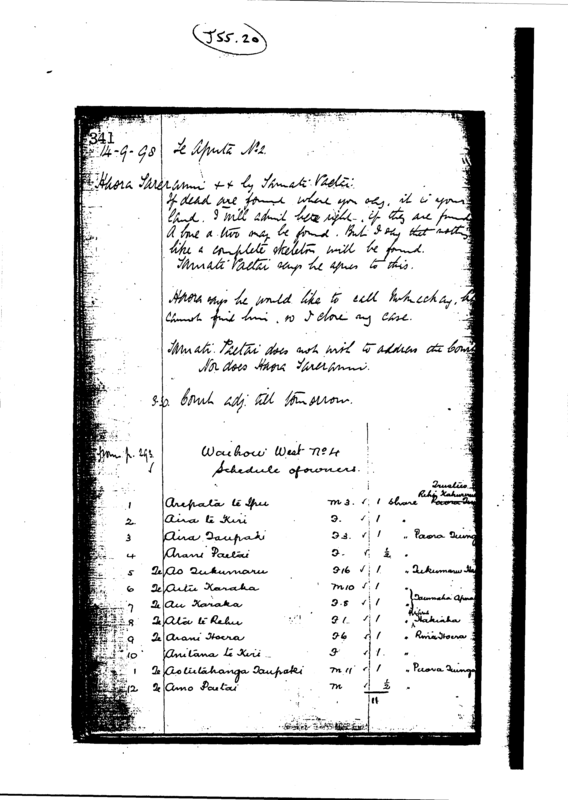 J55.20
341
14-9-98 Te Aputa No 2.
Haora Tareranui ++ by Tamati Paetai
If dead are found where you say, it is your
land. I will admit here right. if they are found
A bone or two may be found. But I say that nothing
like a complete skeleton will be found.
Tamati Paetai says he agrees to this.
Haora says he would like to call he
cannot find him, so I close my case.
Tamati Paetai does not wish to address the Court
Nor does Haora Tareranui.
Court adj. till tomorrow.
from p. 293
Waihou West No 4
Schedule of owners.
Trustees
1 Arepata te Ipu M 3. 1 share
2 Aira te Kiri F. 1 "
3 Aira Taupaki F 3. 1 " Paora
4 Arani Paetai F. ½ "
5 Te Ao Tukumaru F 16 1 " Tukumaru
6 Te Karaka M 10 1 "
7 Te Au Karaka F. 5 1 "
8 Te Ata te Rehu F 1. 1 " Hakiaha
9 Te Arani Hoera F 6 1 " Hoera
10 Anitana te Kiri F 1 "
1 Te Aotutahanga Taupaki M 11 1 " Paora
12 Te Amo Paetai M ½ "
11